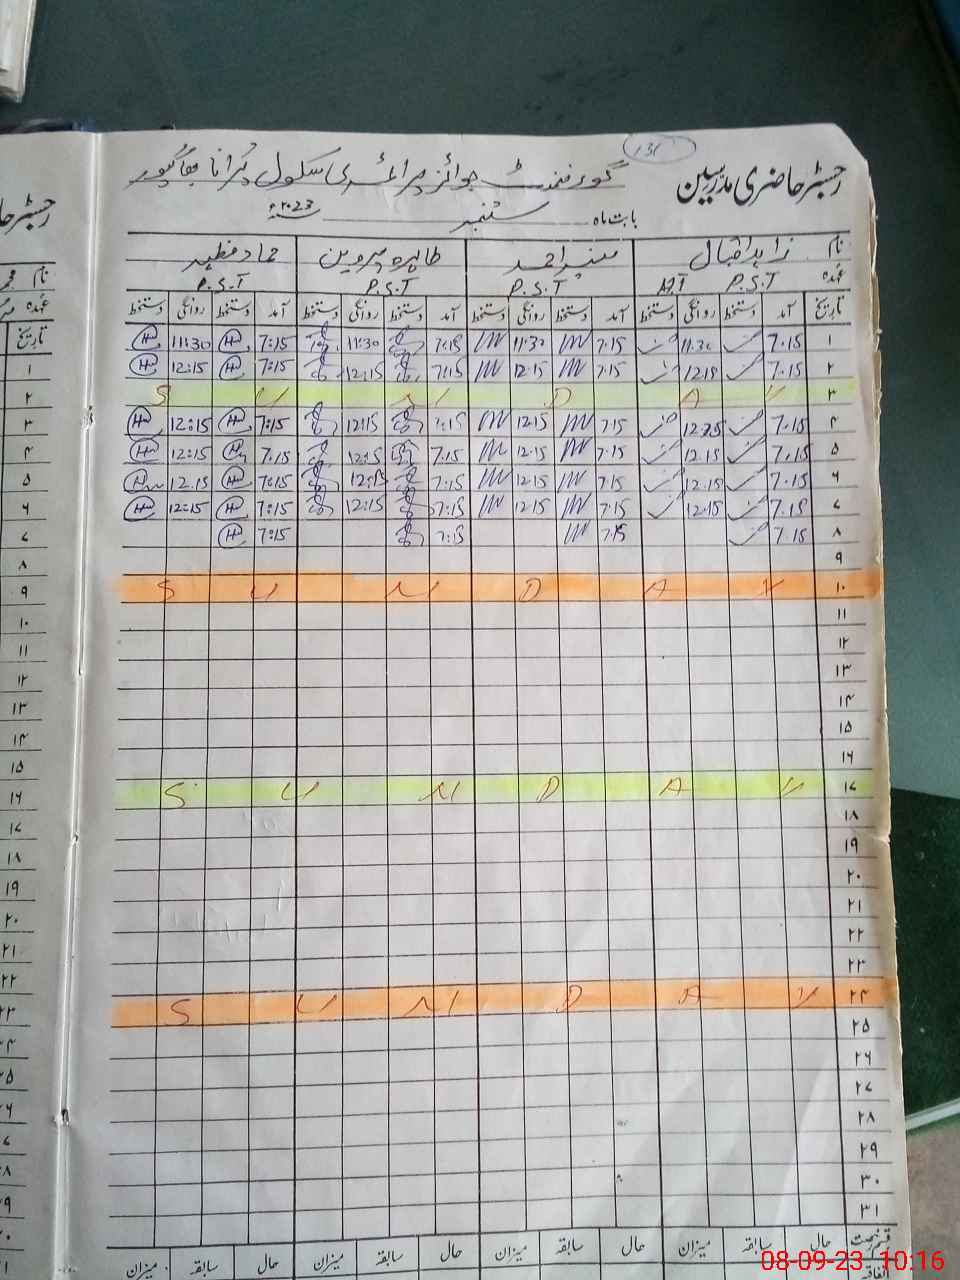 رجسٹر حاضری مدرسین
گورنمنٹ بوائز پرائمری سکول پُرانا بھاگپور
بابت ماہ ستمبر ۲۰۲۳ء
نام زاہد اقبال طاہرہ پروین حماد مظہر
عہدہ P.S.T P.S.T P.S.T P.S.T
تاریخ آمد دستخط روانگی دستخط آمد دستخط روانگی دستخط آمد دستخط روانگی دستخط آمد دستخط روانگی دستخط
۱ 7.15 11.30 7.15 11.30 7:15 11:30 7:15 11:30
۲ 7.15 12.15 7.15 12.15 7:15 12:15 7:15 12:15
۳ S U N D A Y
۴ 7.15 12.15 7.15 12.15 7:15 12:15 7:15 12:15
۵ 7.15 12.15 7.15 12.15 7.15 12:15 7.15 12:15
۶ 7.15 12.15 7.15 12.15 7:15 12:15 7:15 12.15
۷ 7.15 12.15 7.15 12.15 7:15 12:15 7:15 12:15
۸ 7.15 7.15 7:15 7:15
۹
۱۰ S U N D A Y
۱۱
۱۲
۱۳
۱۴
۱۵
۱۶
۱۷ S U N D A Y
۱۸
۱۹
۲۰
۲۱
۲۲
۲۳
۲۴ S U N D A Y
۲۵
۲۶
۲۷
۲۸
۲۹
۳۰
۳۱
حال سابقہ میزان حال سابقہ میزان حال سابقہ میزان حال سابقہ میزان
08-09-23 10:16